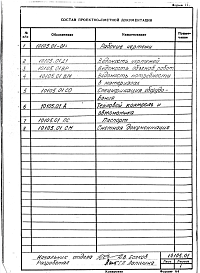 Форма 11
СОСТАВ ПРОЕКТНО-СМЕТНОЙ ДОКУМЕНТАЦИИ
№ п/п Обозначение Наименование Приме-чание
1 10105.01-01 Рабочие чертежи
2 10105.01.Д1 Ведомость чертежей
3 Ведомость объемов работ
4 10105.01.ВМ Ведомость потребности
в материалах
5 10105.01.СО Спецификация оборудо-
вания
6 10105.01.А Тепловой контроль и
автоматика
7 10105.01.ПС Паспорт
8 10105.01.СМ Сметная документация
10105.01
Начальник отдела
Разработал
Лист
Копировал Формат А4